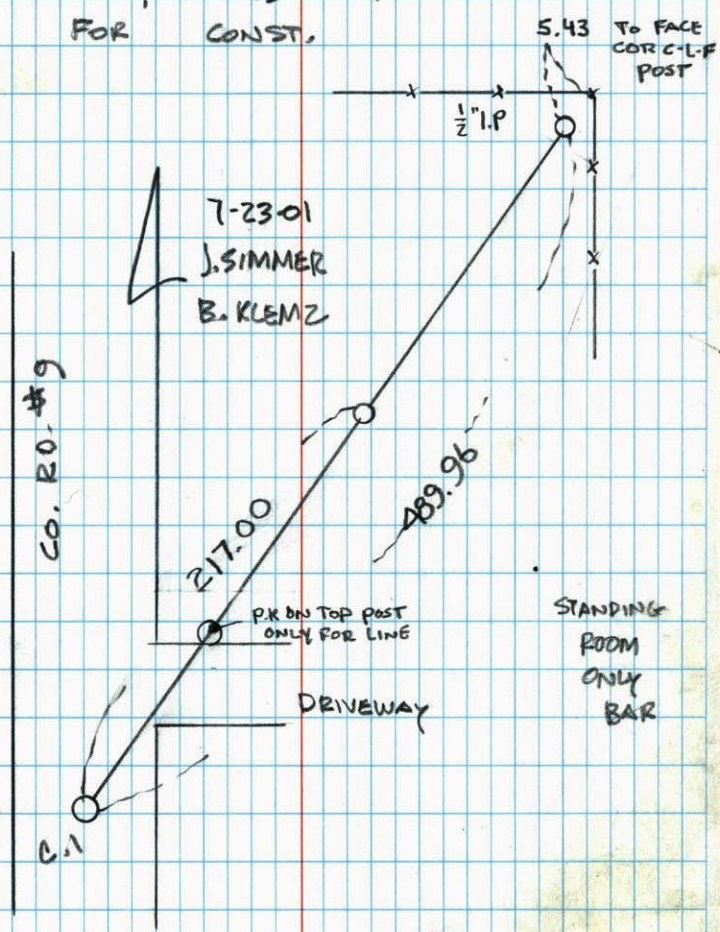 FOR CONST.
5.43 TO FACE
COR C-L-F
POST
1/2" I.P
7-23-01
J. SIMMER
B. KLEMZ
CO. RD. #9
217.00
489.96
P.K ON TOP POST
ONLY FOR LINE
STANDING
ROOM
ONLY
BAR
DRIVEWAY
C.1